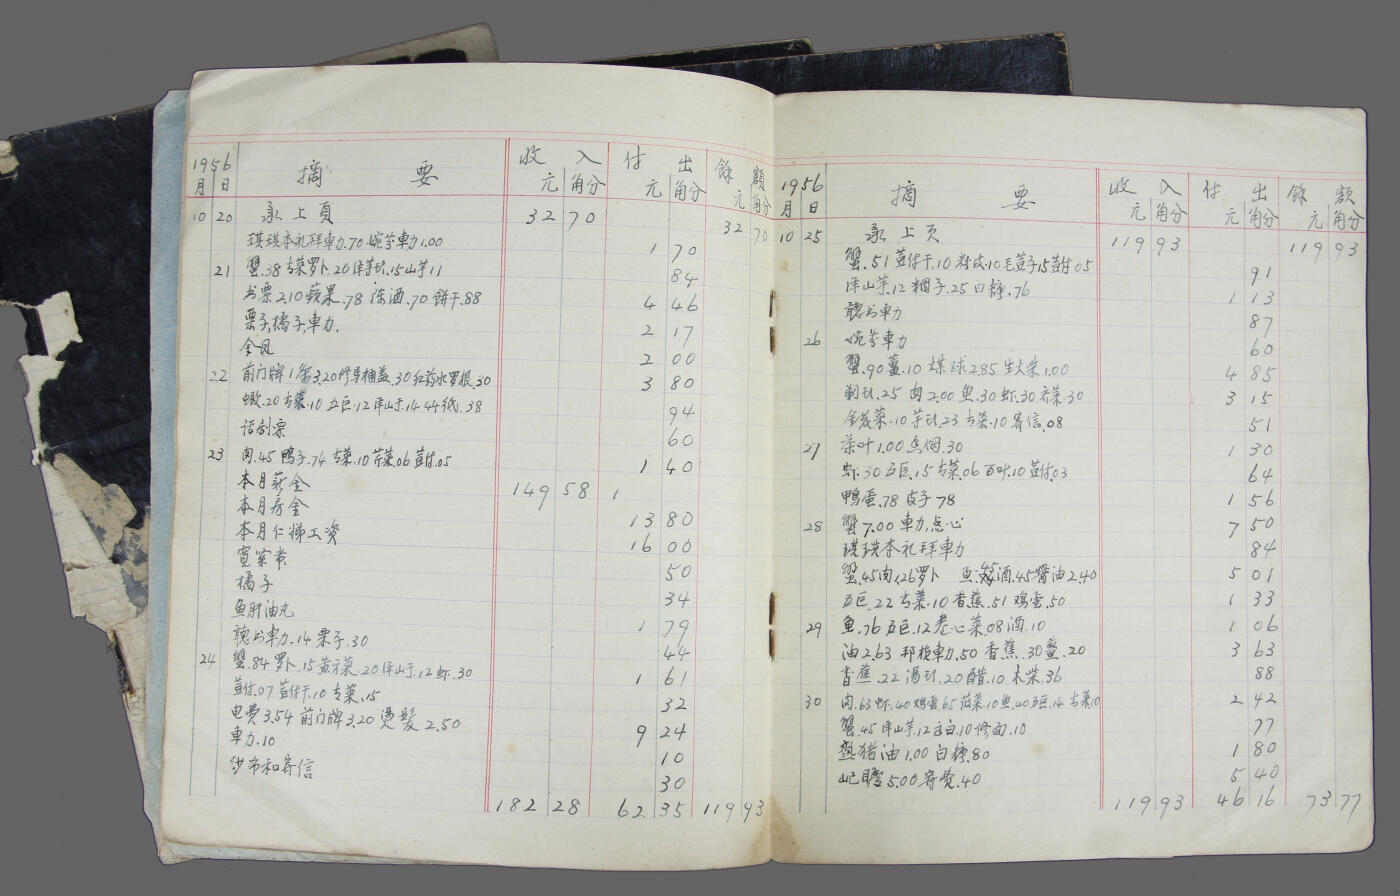 1956 摘要 收入 付出 餘額
月 日 元 角分 元 角分 元 角分
10 20 承上頁 32 70 32 70
琪琪本礼拜車力.70 婉芬車力1.00 1 70
21 蟹.38 青菜罗卜.20 洋芋艿.15 山芋11 84
书票2.10 蘋果.78 陈酒.70 餅干.88 4 46
栗子,橘子,車力. 2 17
金凤 2 00
22 前门牌1条3.20 修馬桶盖.30 红药水罗根.30 3 80
蝦.20 青菜.10 豆巨.12 洋山于.14 44 纸.38 94
话剧票 60
23 肉.45 鸭子.74 青菜.10 芹菜06 荳付.05 1 40
本月薪金 149 58 1
本月房金 13 80
本月仁娣工资 16 00
宽紧带 50
橘子 34
鱼肝油丸 1 79
聽书車力.14 栗子.30 44
24 蟹.84 罗卜.15 黄芽菜.20 洋山于.12 虾.30 1 61
荳付.07 荳付干.10 青菜.15 32
电费3.54 前门牌3.20 燙髮2.50 9 24
車力.10 10
纱布和寄信 30
182 28 62 35 119 93
1956 摘要 收入 付出 餘額
月 日 元 角分 元 角分 元 角分
10 25 承上页 119 93 119 93
蟹.51 荳付干.10 粉皮.10 毛荳子15 荳付05 91
洋山芋.12 稠子.25 白糖.76 1 13
聽书車力 87
26 婉芬車力 60
蟹.90 薑.10 煤球2.85 生大菜1.00 4 85
剃头.25 肉2.00 鱼.30 虾.30 菜.30 3 15
金花菜.10 芋艿.23 青菜.10 寄信.08 51
27 茶叶1.00 鱼.30 1 30
虾.30 豆巨.15 青菜.06 百叶.10 荳付.03 64
鴨蛋.78 皮子78 1 56
28 蟹7.00 車力,点心 7 50
琪琪本礼拜車力 84
蟹.45 肉1.26 罗卜 鱼.45 酒.45 醬油2.40 5 01
豆巨.22 青菜.10 香蕉.51 鸡蛋.50 1 33
29 鱼.76 豆巨.12 卷心菜08 酒.10 1 06
油2.63 邦梭車力.50 香蕉.30 .20 3 63
香蕉.22 湯.20 醋.10 木柴.36 88
30 肉.63 虾.40 鸡蛋65 菠菜.10 鱼.40 豆巨.14 青菜10 2 42
蟹.45 洋山芋.12 .10 修面.10 77
熬猪油1.00 白糖.80 1 80
5.00 寄费.40 5 40
119 93 46 16 73 77